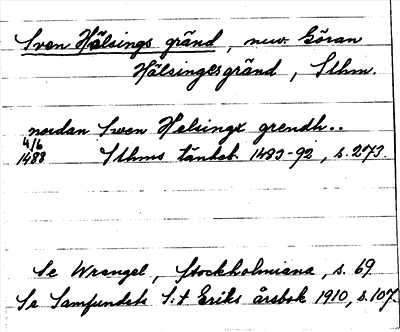 Sven Hälsings gränd, nuv. Göran
Hälsingesgränd, Sthm.
nordan Swen Helsingx grendh..
4/6
1488 Sthms tänkeb. 1483-92, s. 273.
Se Wrangel, Stockholmiana, s. 69
Se Samfundets S:t Eriks årsbok 1910, s. 107.